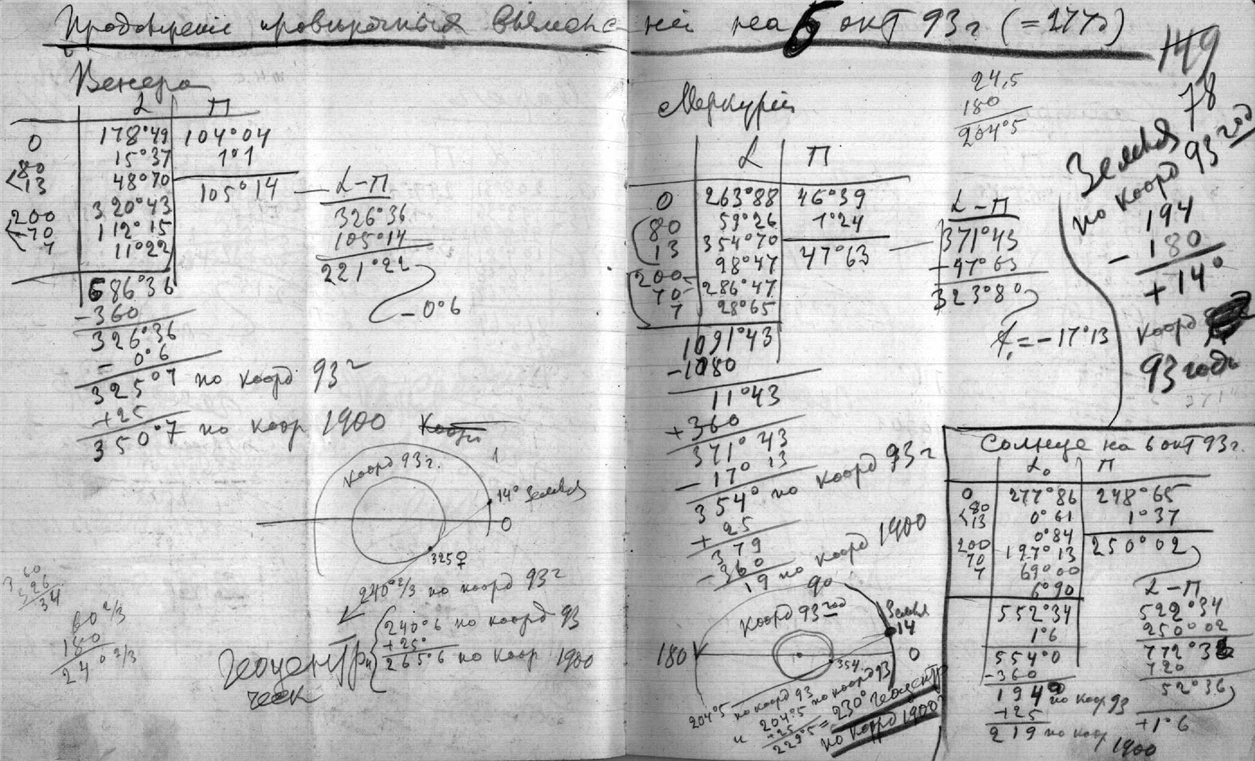 Продолжение проверочных вычислений на 6 окт 93 г (=277д)
149
78
Венера
L П
0 178°49 104°04
15°37 1°1
80
13 48°70 105°14
320°43
200
70 112°15
7 11°22
686°36
-360
326°36
- 0°6
325°7 по коорд 93 г
+25
350°7 по коор 1900
L-П
326°36
105°14
221°22
-0°6
Коорд 93г.
14° Земля
0
325♀
240°2/3 по коорд 93 г
Геоцентри
ческ
240°6 по коорд 93
+25°
265°6 по коор 1900
360
326
34
60 2/3
180
240 2/3
Меркурій
24,5
180
204°5
L П
0 263°88 46°39
80 59°26 1°24
13 354°70 47°63
200 98°47
70 286°47
7 28°65
1091°43
-1080
11°43
+360
371°43
- 17°13
354° по коорд 93 г
+ 25
379
- 360
19 по коорд 1900
L-П
371°43
-47°63
323°80
= -17°13
90
Коорд 93 год
Земля
14
180
0
354
204°5 по коорд 93
и 204°5 по коорд 93
+25
229°5 = 230° геоцентр
по коорд 1900
Земля
по коорд 93 год
194
- 180
+14°
коорд
93 годъ
Солнце на 6 окт 93 г.
L₀ П
0 277°86 248°65
80
13 0°61 1°37
0°84 250°02
200 197°13
70 69°00
7 6°90
552°34
1°6
554°0
-360
194° по коор 93
+25
219 по коор 1900
L-П
522°34
250°02
772°3
720
52°36
+1°6